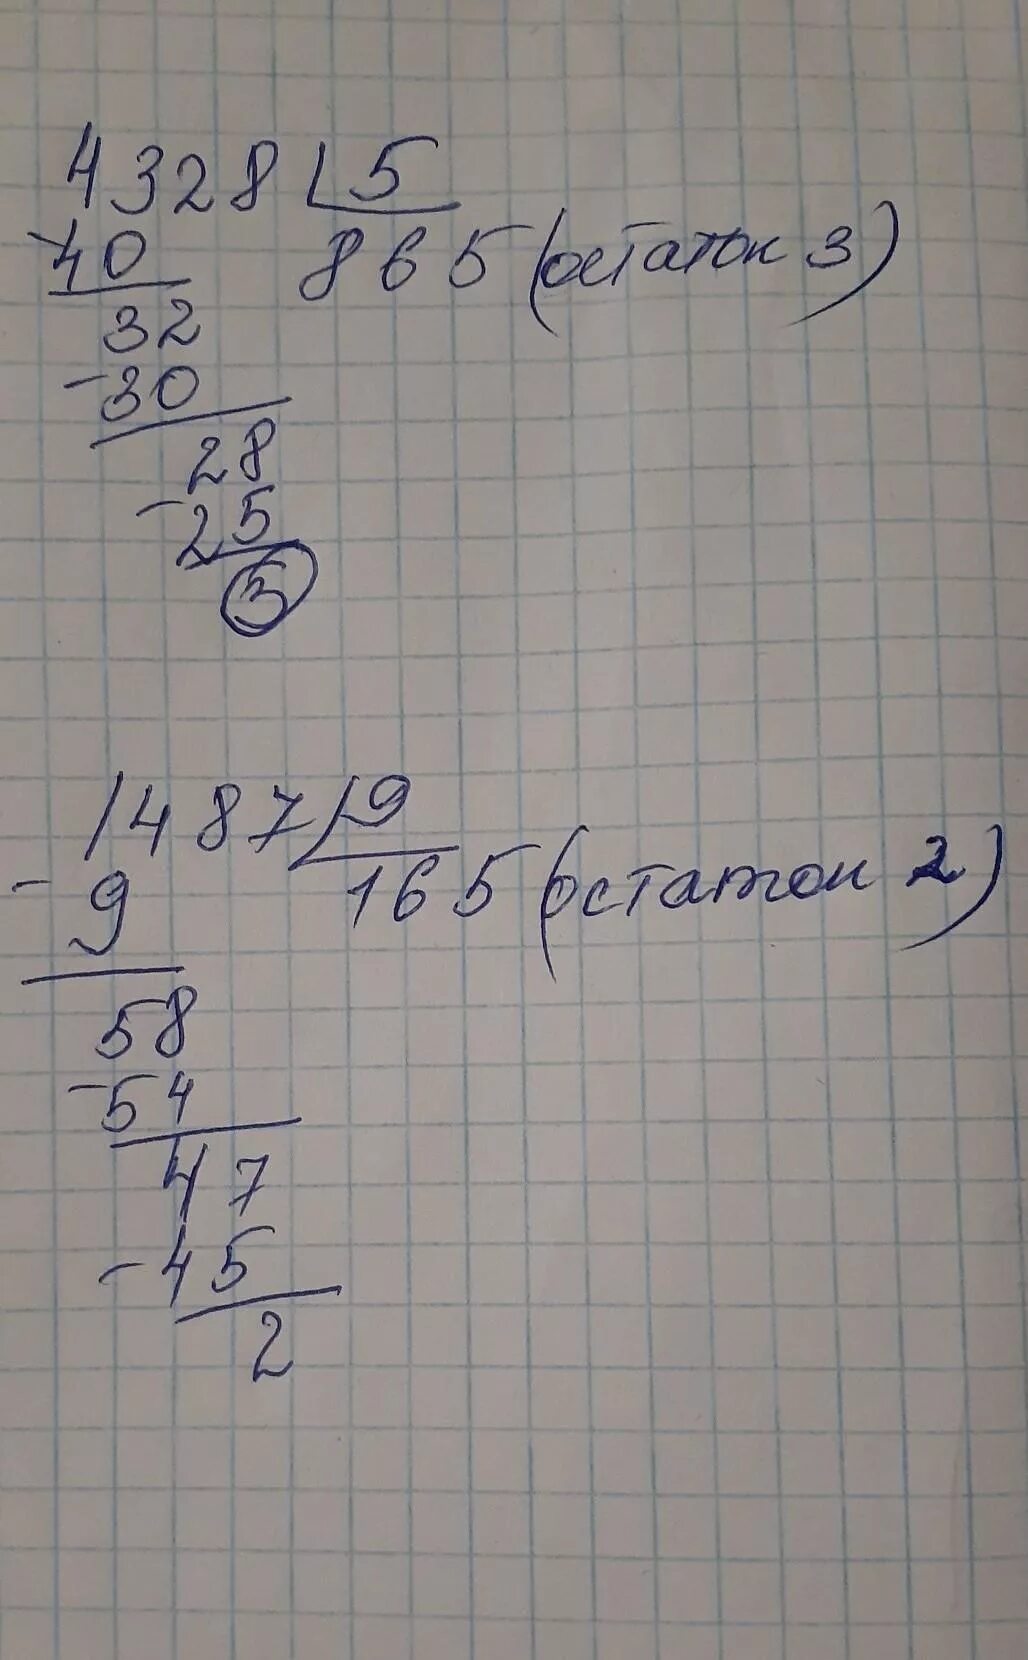 4328 | 5
- 40 865 (остаток 3)
32
- 30
28
- 25
3
1487 | 9
- 9 165 (остаток 2)
58
- 54
47
- 45
2